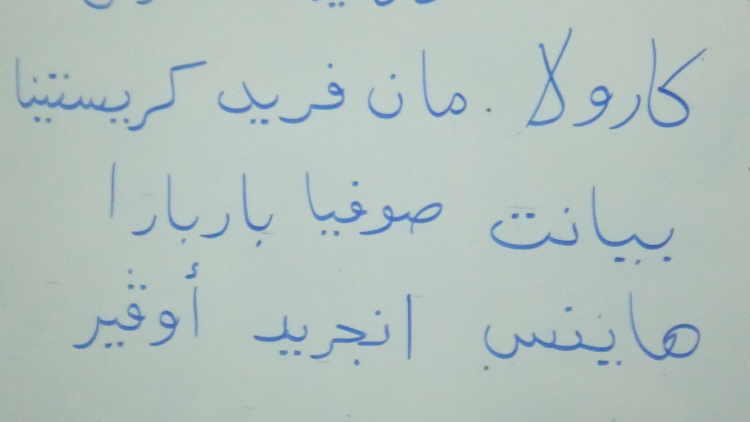 كارولا . مان فريد كريستينا
بيانت صوفيا باربارا
هاينس انجريد أوڤير